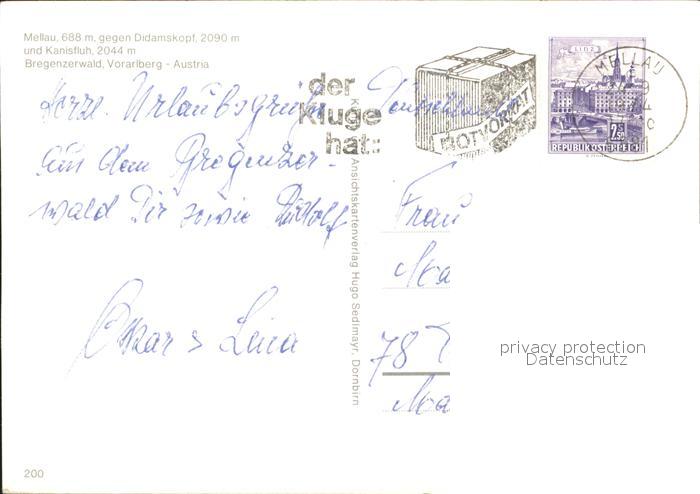 Mellau, 688 m, gegen Didamskopf, 2090 m
und Kanisfluh, 2044 m
Bregenzerwald, Vorarlberg - Austria
der
Kluge
hat:
NOTVORRAT
LINZ
MELLAU
2.50
REPUBLIK ÖSTERREICH
Herzl. Urlaubsgrüße
aus dem Bregenzer-
wald Dir sowie Rudolf
Oskar & Lina
Ansichtskartenverlag Hugo Sedlmayr, Dornbirn
Deutschland
Frau
Ma
78
Ma
privacy protection
Datenschutz
200